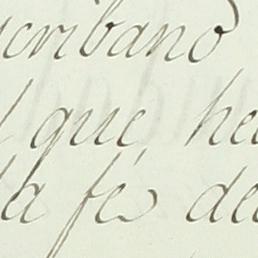 scribano
que, he
la fe de